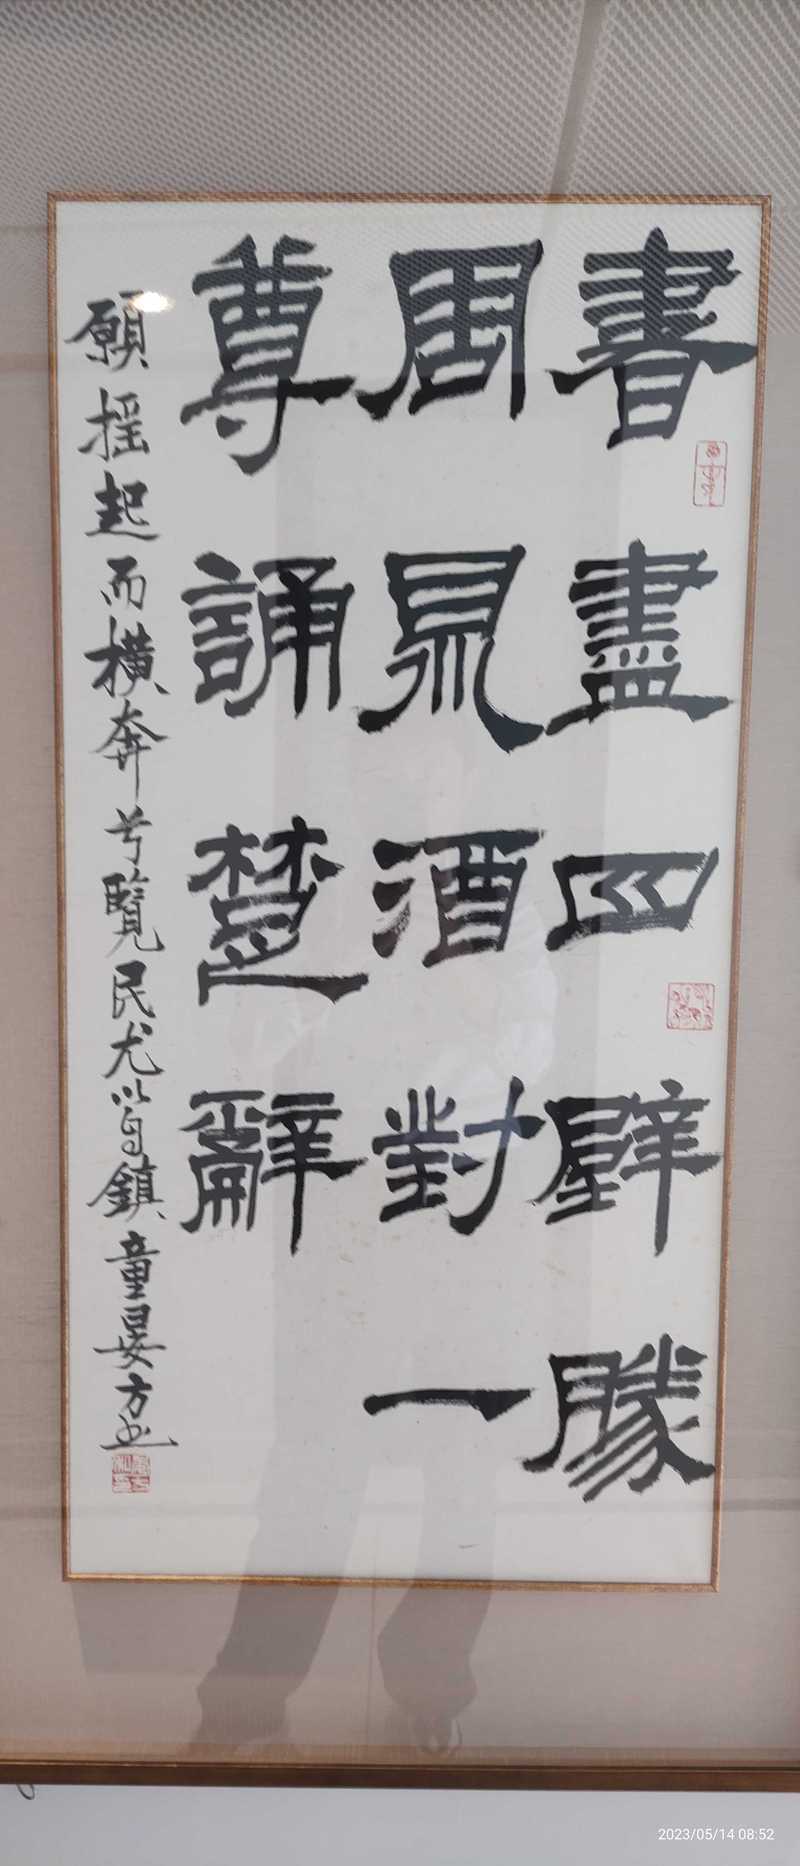 書盡四壁勝
周易酒對一
尊誦楚辭
願摇起而橫奔兮覽民尤以自鎮童晏方
2023/05/14 08:52